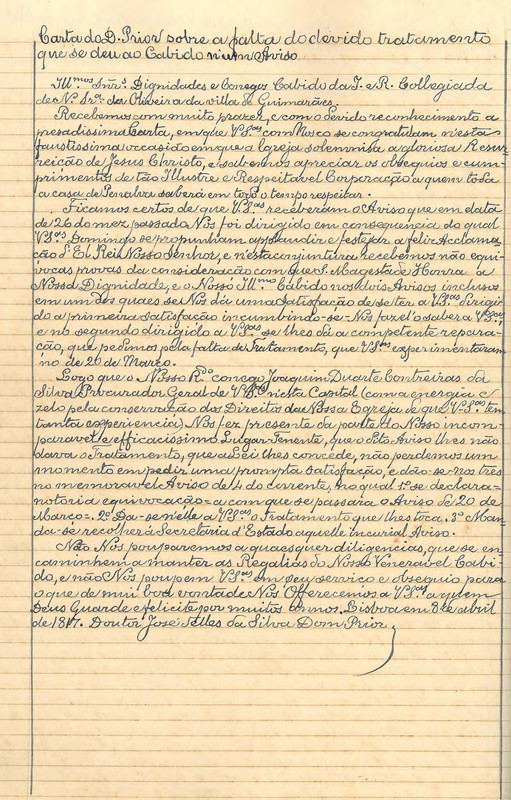 Carta do D. Prior sobre a falta do devido tratamento
que se deu ao Cabido n'um Aviso
Ill.mos Snr.s Dignidades e Conegos Cabido da I. e R. Collegiada
de N. Sr.a da Oliveira da villa de Guimarães.
Recebemos com muito prazer, e com o devido reconhecimento a
presadissima Carta, em que V.S.as comNosco se congratulam n'esta
faustissima occasião em que a Igreja solemnisa a gloriosa Resur-
reição de Jesus Christo, e sabemos apreciar os obsequios e cum-
primentos de tão Illustre e Respeitavel Corporação a quem toda
a casa de Penalva saberá em todo o tempo respeitar.
Ficamos certos de que V.S.as receberam o Aviso que em data
de 26 do mez passado Nos foi dirigido em consequencia do qual
V.S.as Domingo se propunham applaudir e festejar a feliz Acclama-
ção d'El Rei Nosso Senhor, e n'esta conjuntura recebemos não equi-
vocas provas da consideração com que S. Magestade Honra a
Nossa Dignidade, e o Nosso Ill.mo Cabido nos dois Avisos inclusos
em um dos quaes se Nos dá uma satisfação de se ter a V.S.as dirigi-
do a primeira satisfação incumbindo-se-Nos fazel'o saber a V.S.as,
e no segundo dirigido a V.S.as se lhes dá a competente repara-
ção, que pedimos pela falta de Tratamento, que V.S.as experimentaram
no de 26 de Março.
Logo que o Nosso R.do conego Joaquim Duarte Contreiras da
Silva Procurador Geral de V.S.as n'esta Capital (com a energia e
zelo pela conservação dos Direitos da Nossa Egreja de que V.S.as tem
tanta experiencia) Nos fez presente da parte do Nosso incom-
paravel e efficacissimo Lugar-Tenente, que o dito Aviso lhes não
dava o Tratamento, que a Lei lhes concede, não perdemos um
momento em pedir uma prompta satisfação, e dão-se-nos tres
no memoravel Aviso de 4 do corrente, no qual 1.º se declara=
notoria equivocação= a com que se passara o Aviso de 20 de
Março=. 2.º Da-se n'elle a V.S.as o Tratamento que lhes toca. 3.º Man-
da-se recolher á Secretaria d'Estado aquelle incurial Aviso.
Não Nos pouparemos a quaesquer diligencias, que se en-
caminhem a manter as Regalias do Nosso Veneravel Cabi-
do, e não Nos poupem V.S.as em seu serviço e obsequio para
o que de mui boa vontade Nos Offerecemos a V.S.as a quem
Deus Guarde e felicite por muitos annos. Lisboa em 8 de abril
de 1817. Doutor José Telles da Silva Dom Prior